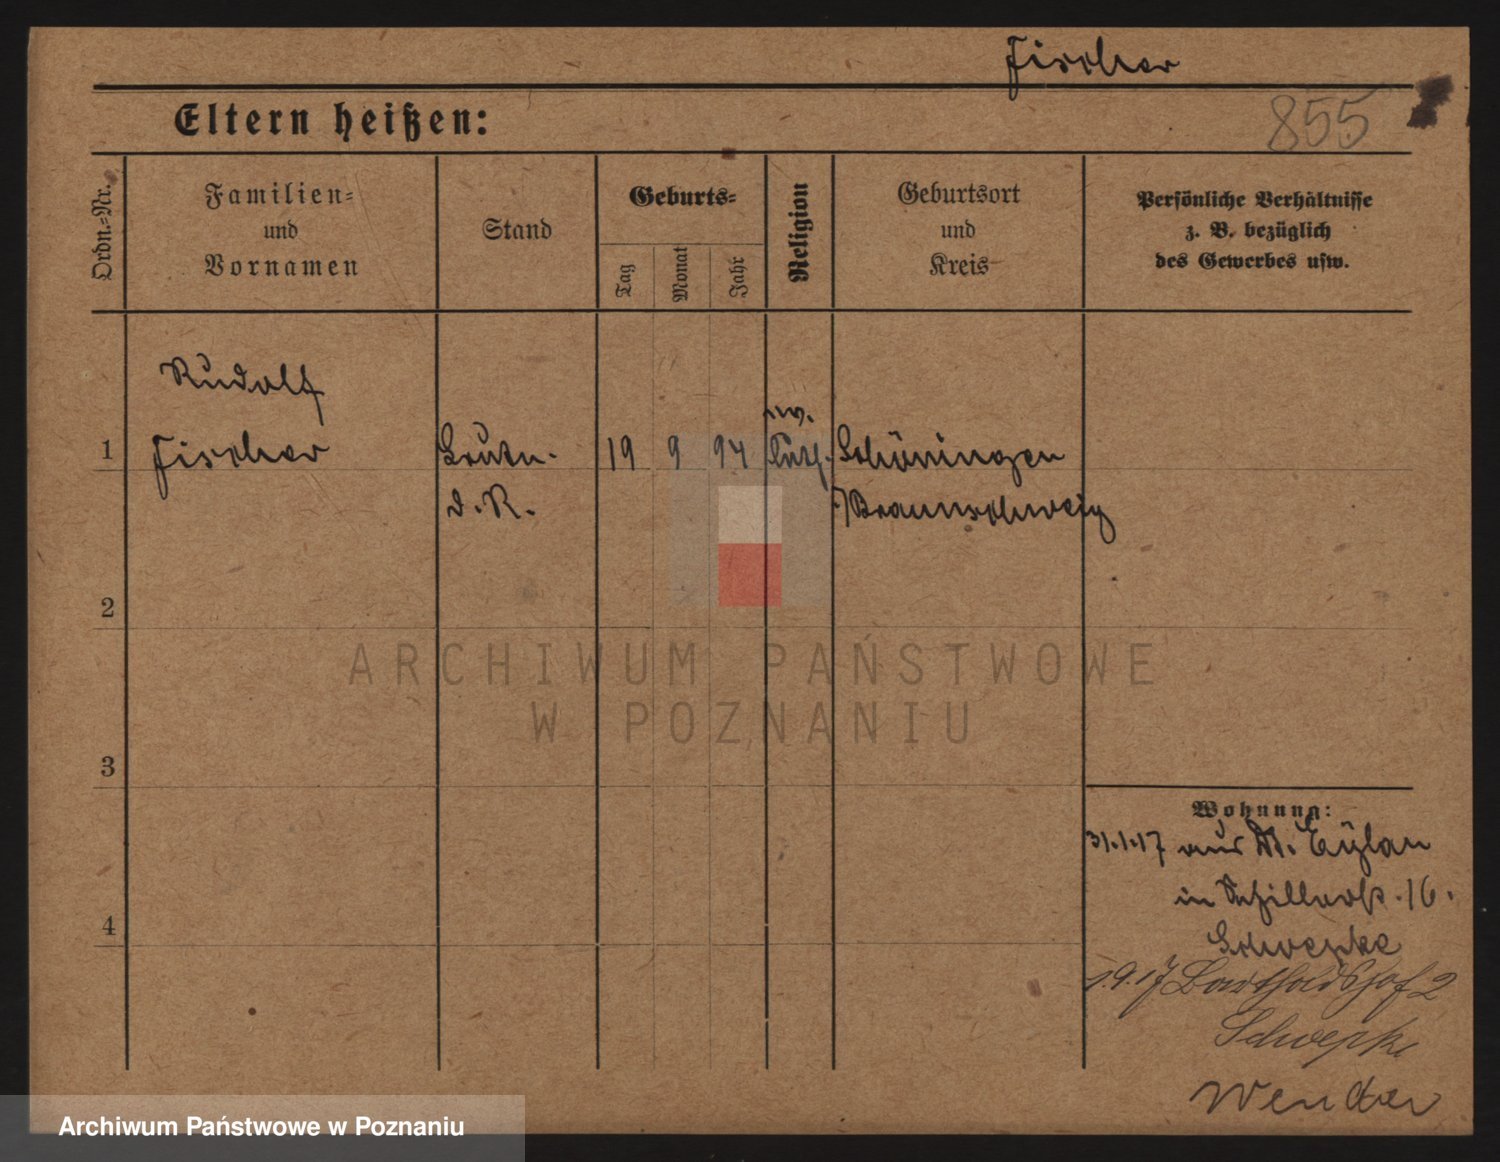 Fischer
Eltern heißen:
855
Ordn.-Nr.
Familien-
und
Vornamen
Stand
Geburts-
Tag
Monat
Jahr
Religion
Geburtsort
und
Kreis
Persönliche Verhältnisse
z. B. bezüglich
des Gewerbes usw.
Rudolf
1 Fischer Leutn. 19 9 94 ev. Luth. Schöningen
d. R. Braunschweig
2
3
4
Wohnung:
31.1.17 aus Dt. Eylau
in Schillerstr. 16.
Schwepke
1.9.17 Bartholdshof 2
Schwepke
Wender
ARCHIWUM PAŃSTWOWE
W POZNANIU
Archiwum Państwowe w Poznaniu